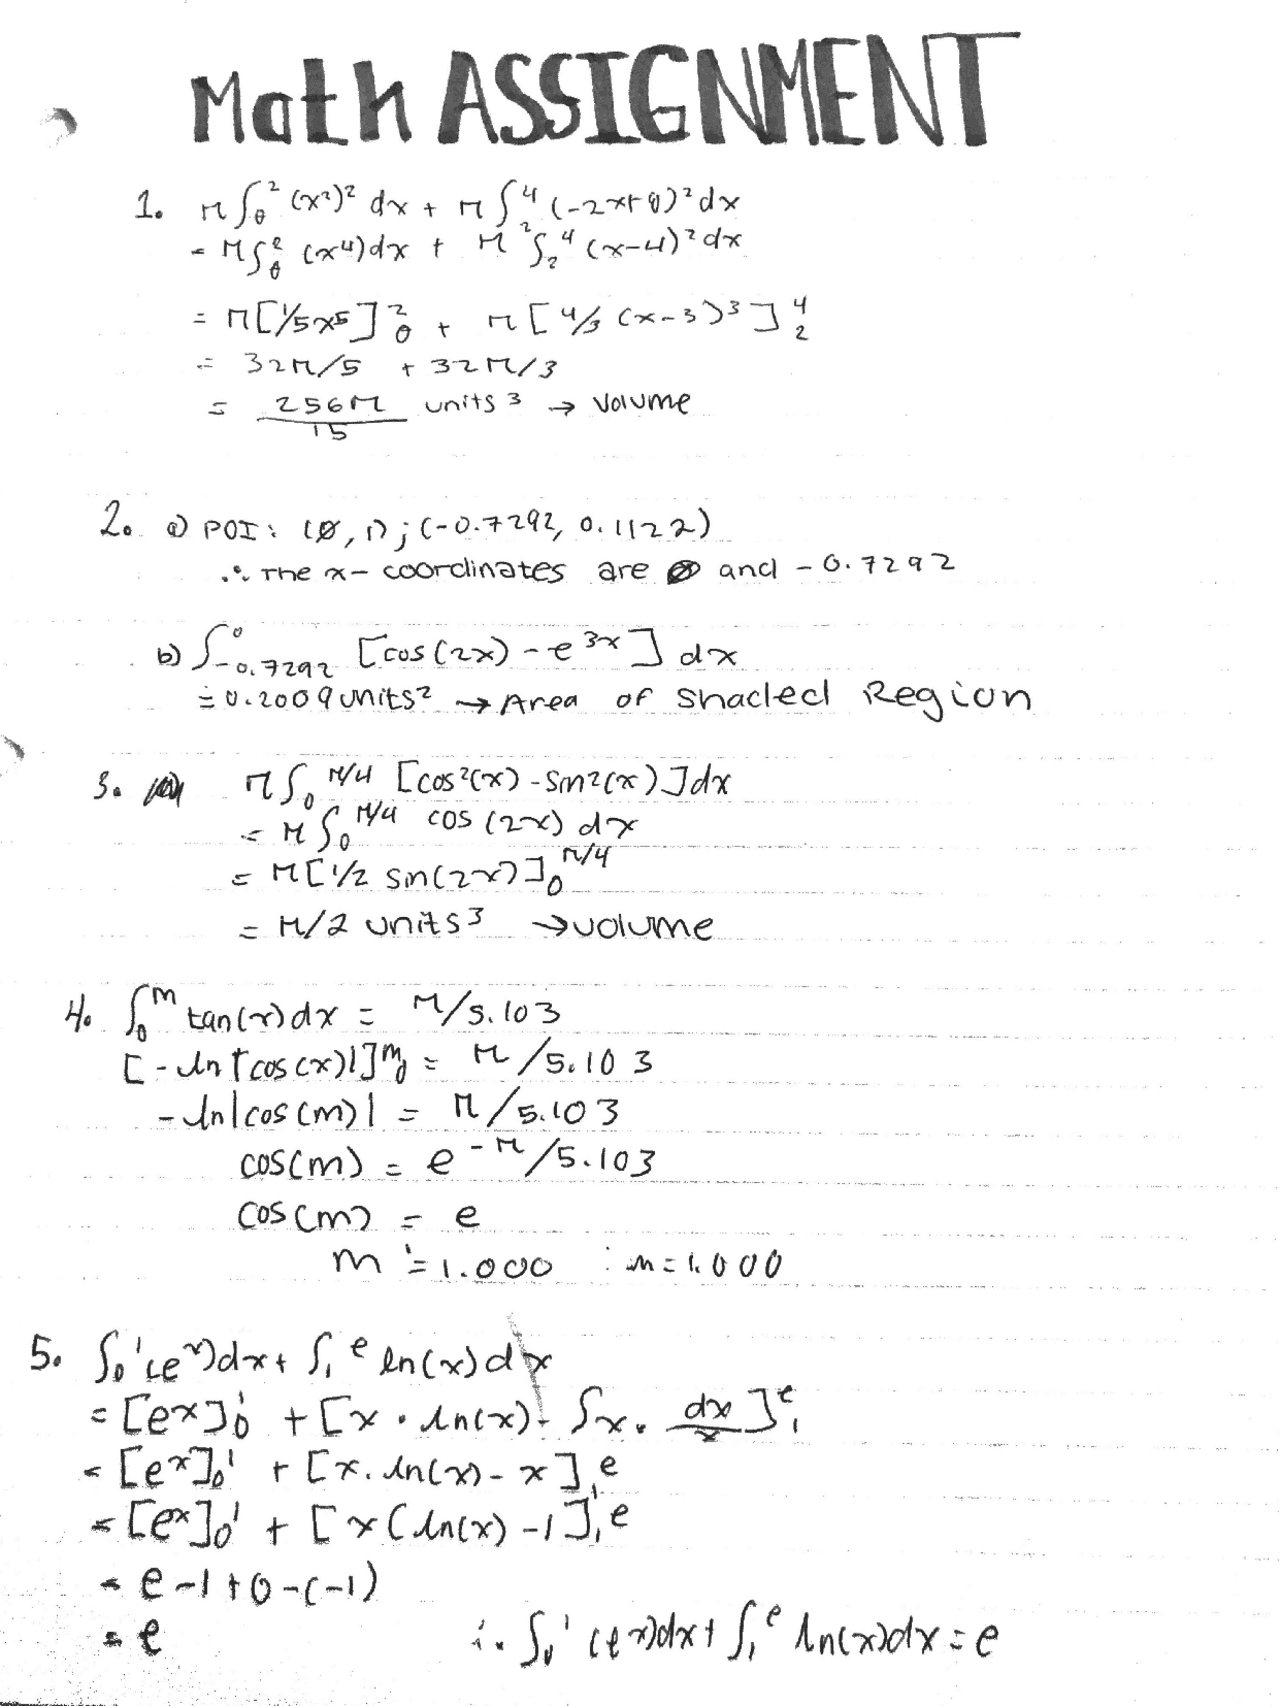 Math ASSIGNMENT
1. π∫₀² (x²)² dx + π∫₂⁴ (-2x+8)² dx
= π∫₀² (x⁴)dx + π 2²∫₂⁴ (x-4)² dx
= π[1/5x⁵]₀² + π[4/3 (x-3)³]₂⁴
= 32π/5 + 32π/3
= 256π/15 units³ → volume
2. a) POI: (0, 1); (-0.7292, 0.1122)
∴ The x-coordinates are 0 and -0.7292
b) ∫₋₀.₇₂₉₂⁰ [cos(2x) - e³ˣ] dx
≐ 0.2009 units² → Area of Shaded Region
3. π∫₀^π/4 [cos²(x) - sin²(x)]dx
= π∫₀^π/4 cos(2x) dx
= π[1/2 sin(2x)]₀^π/4
= π/2 units³ → volume
4. ∫₀^m tan(x)dx = π/5.103
[-ln|cos(x)|]₀^m = π/5.103
-ln|cos(m)| = π/5.103
cos(m) = e^-π/5.103
cos(m) = e
m ≐ 1.000 ∴ m = 1.000
5. ∫₀¹(eˣ)dx + ∫₁^e ln(x)dx
= [eˣ]₀¹ + [x · ln(x) - ∫x · dx/x]₁^e
= [eˣ]₀¹ + [x · ln(x) - x]₁^e
= [eˣ]₀¹ + [x(ln(x) - 1]₁^e
= e - 1 + 0 - (-1)
= e ∴ ∫₀¹ (eˣ)dx + ∫₁^e ln(x)dx = e